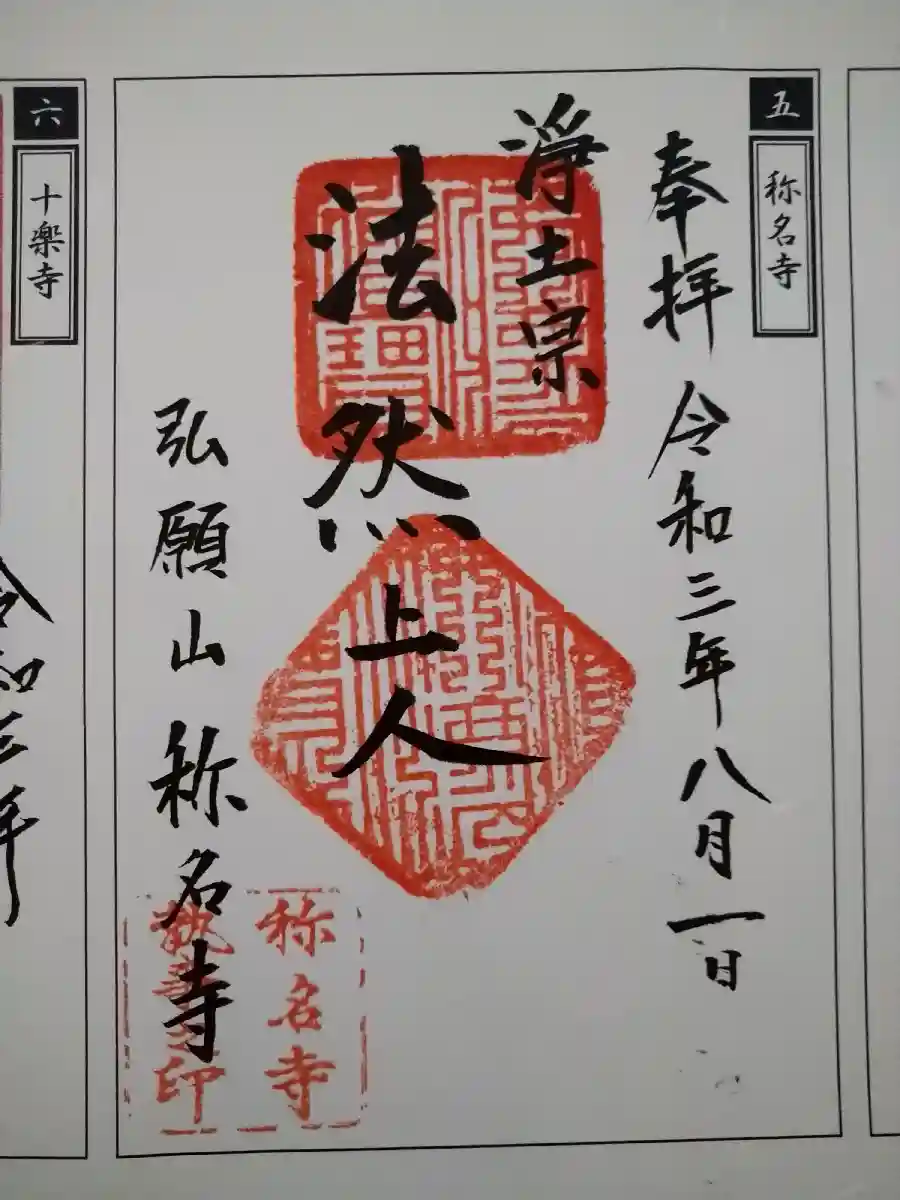 五
称名寺
奉拝 令和三年八月一日
浄土宗
法然上人
弘願山 称名寺
称名寺
印
六
十楽寺
令和三年